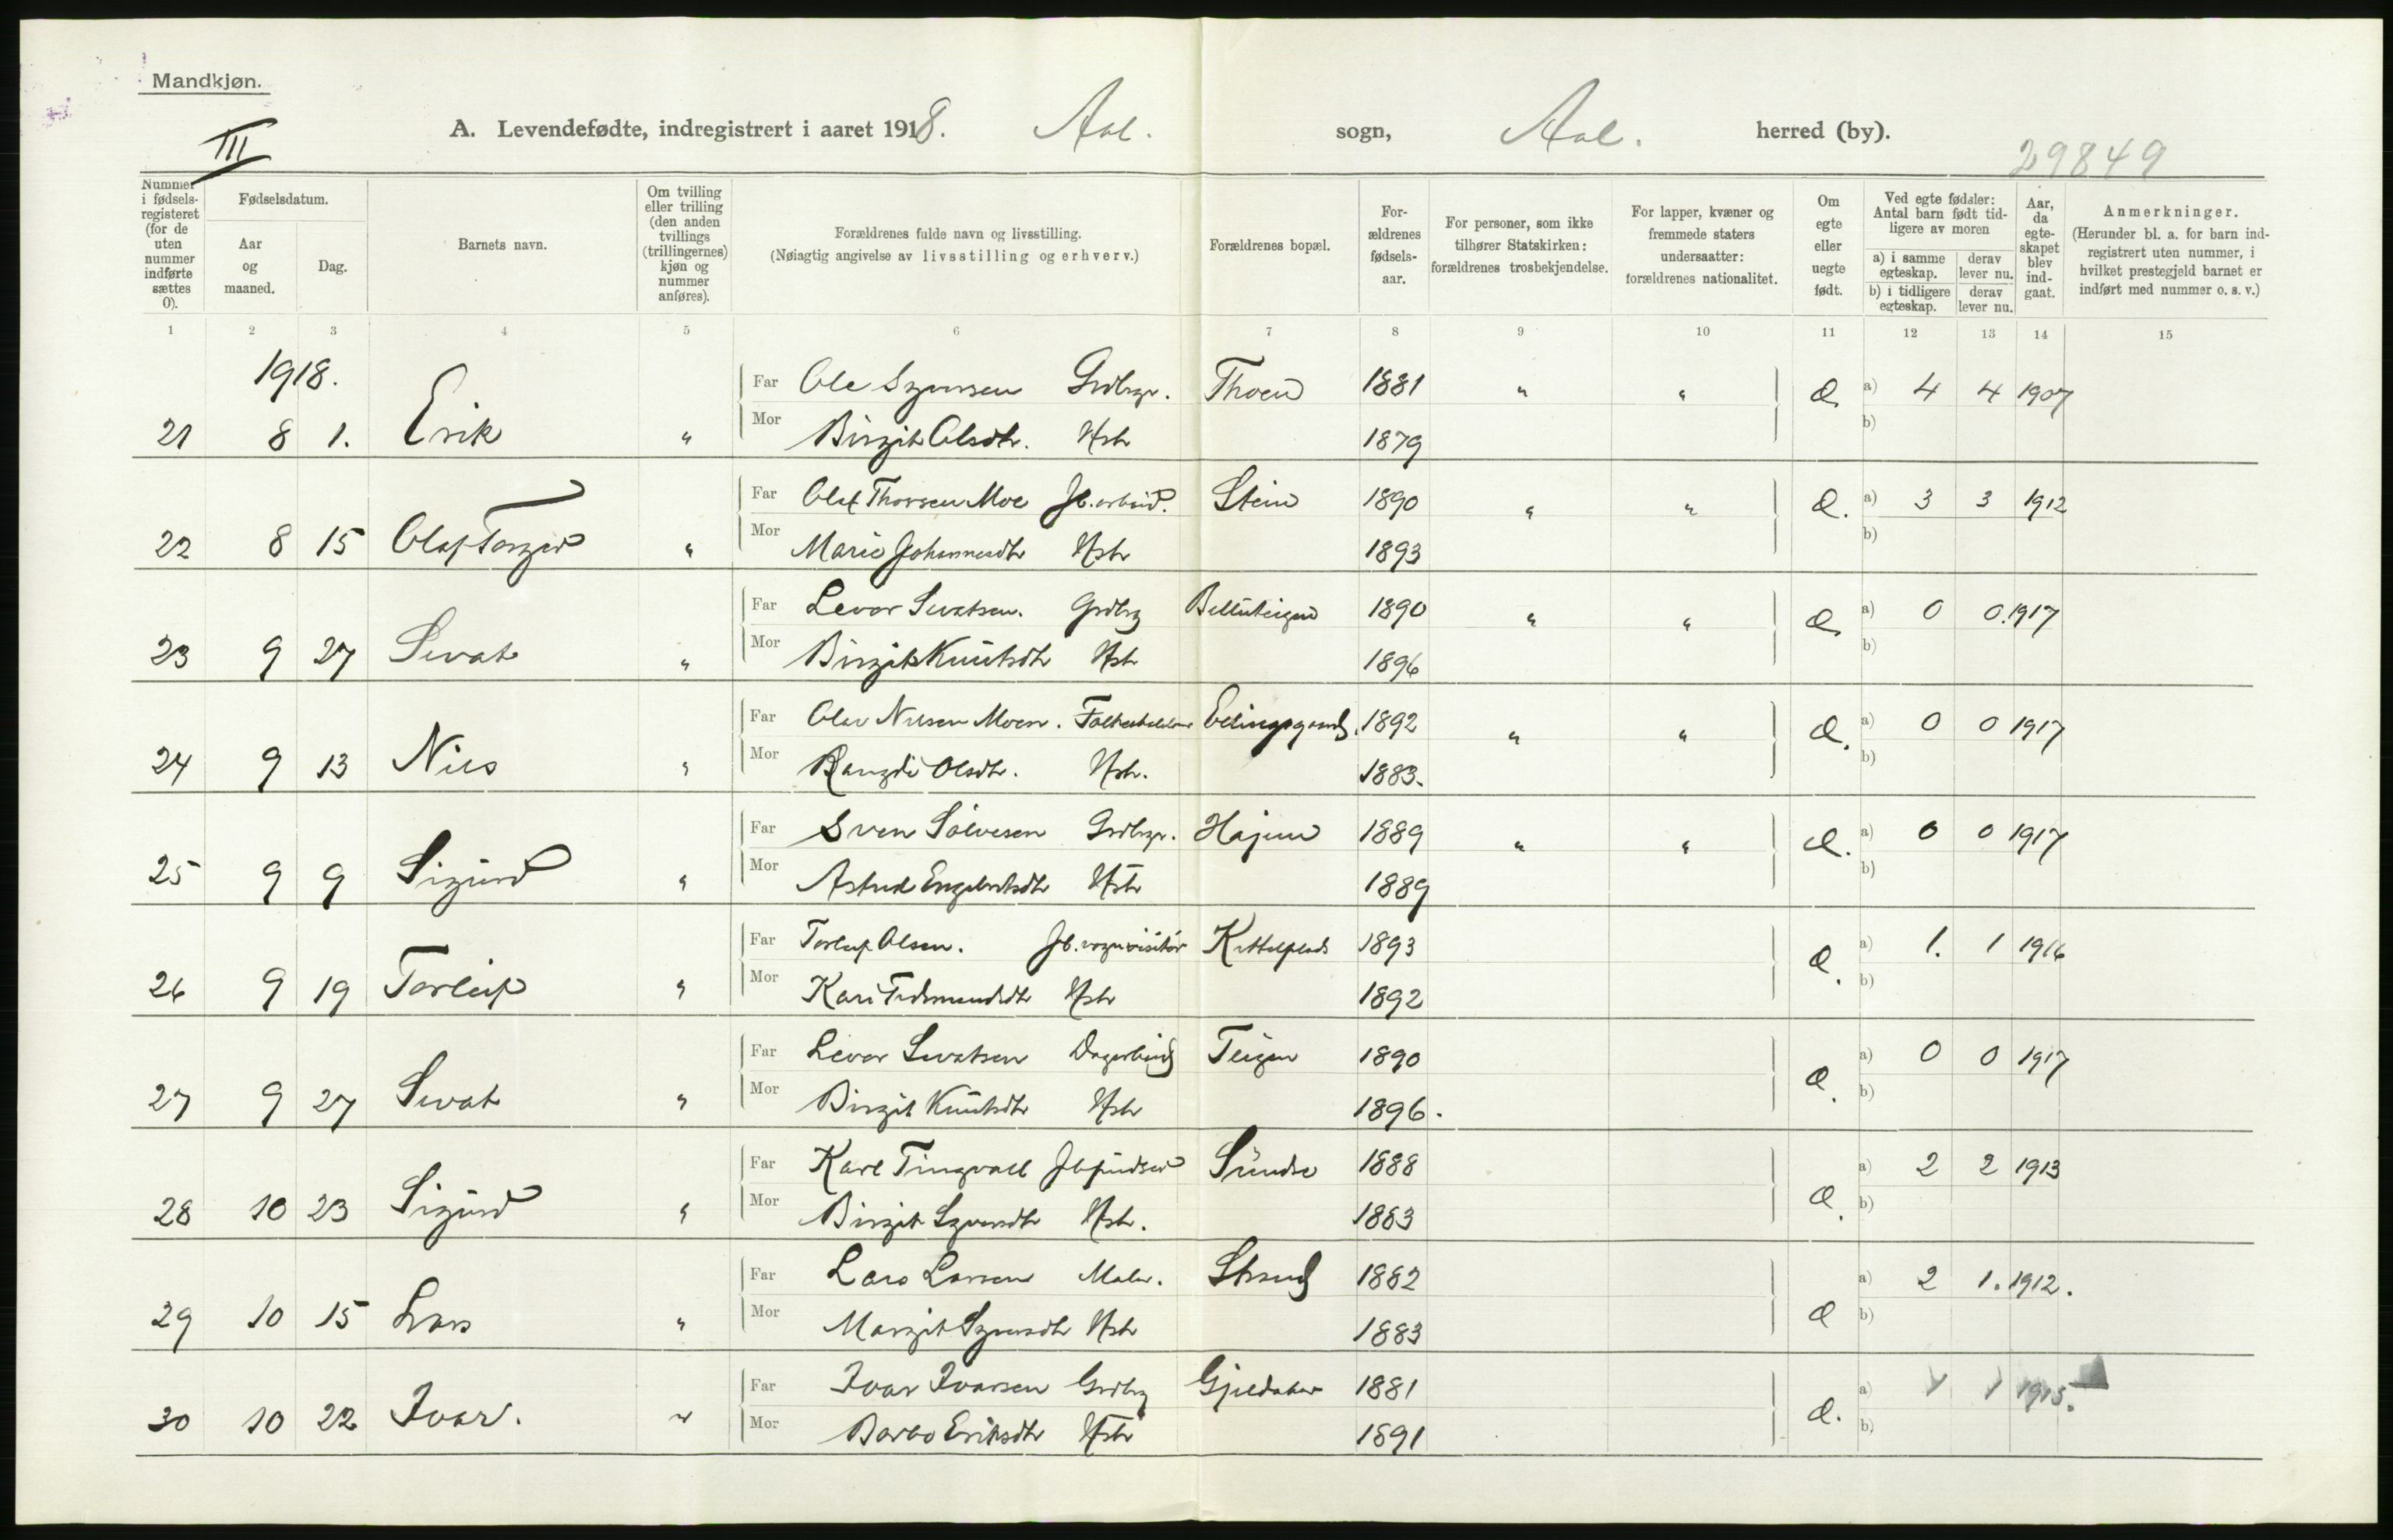 Mandkjøn.
III
A. Levendefødte, indregistrert i aaret 1918. Aal. sogn, Aal. herred (by).
29849
Nummer i fødsels-registeret (for de uten nummer indførte sættes 0).
Fødselsdatum.
Aar og maaned.
Dag.
Barnets navn.
Om tvilling eller trilling (den anden tvillings (trillingernes) kjøn og nummer anføres).
Forældrenes fulde navn og livsstilling.
(Nøiagtig angivelse av livsstilling og erhverv.)
Forældrenes bopæl.
For-ældrenes fødsels-aar.
For personer, som ikke tilhører Statskirken: forældrenes trosbekjendelse.
For lapper, kvæner og fremmede staters undersaatter: forældrenes nationalitet.
Om egte eller uegte født.
Ved egte fødsler: Antal barn født tid-ligere av moren
a) i samme egteskap. derav lever nu.
b) i tidligere egteskap. derav lever nu.
Aar, da egte-skapet blev ind-gaat.
Anmerkninger.
(Herunder bl. a. for barn ind-registrert uten nummer, i hvilket prestegjeld barnet er indført med nummer o. s. v.)
1 2 3 4 5 6 7 8 9 10 11 12 13 14 15
1918.
Far Ole Syversen Grdbrgr. Thoen 1881 " " a) 4 4 1907
21 8 1. Erik " Mor Birgit Olsdtr. Hstr 1879 b)
Far Olaf Thorsen Moe Jb.arbeid. Stein 1890 " " a) 3 3 1912
22 8 15 Olaf Torger " Mor Marie Johannesdtr Hstr 1893 b)
Far Levor Sevatsen. Grdbrg 1890 " " a) 0 0. 1917
23 9 27 Sevat " Mor Birgit Knutsdtr Hstr 1896 b)
Far Olav Nilsen Moen. 1892 " " a) 0 0 1917
24 9 13 Nils " Mor Rangdi Olsdtr. Hstr. 1883. b)
Far Sven Sølvesen Grdbrgr. 1889 " " a) 0 0 1917
25 9 9 Sigurd " Mor Astrid Engebretsdtr Hstr 1889 b)
Far Torleif Olsen. Jb.vognvisitør Kittelplads 1893 a) 1. 1 1916
26 9 19 Torleif " Mor Kari Hstr 1892 b)
Far Levor Sevatsen Dagarbeid Teigen 1890 a) 0 0 1917
27 9 27 Sevat " Mor Birgit Knutsdtr Hstr 1896. b)
Far Karl Tingvall Sundre 1888 a) 2 2 1913
28 10 23 Sigurd " Mor Birgit Syversdtr Hstr. 1883 b)
Far Lars Larsen Maler. Strand 1882 a) 2 1. 1912.
29 10 15 Lars " Mor Margit Syversdtr Hstr 1883 b)
Far Ivar Ivarsen Grdbrg 1881 a) 1 1 1915.
30 10 22 Ivar. " Mor Barbo Eriksdtr Hstr 1891 b)